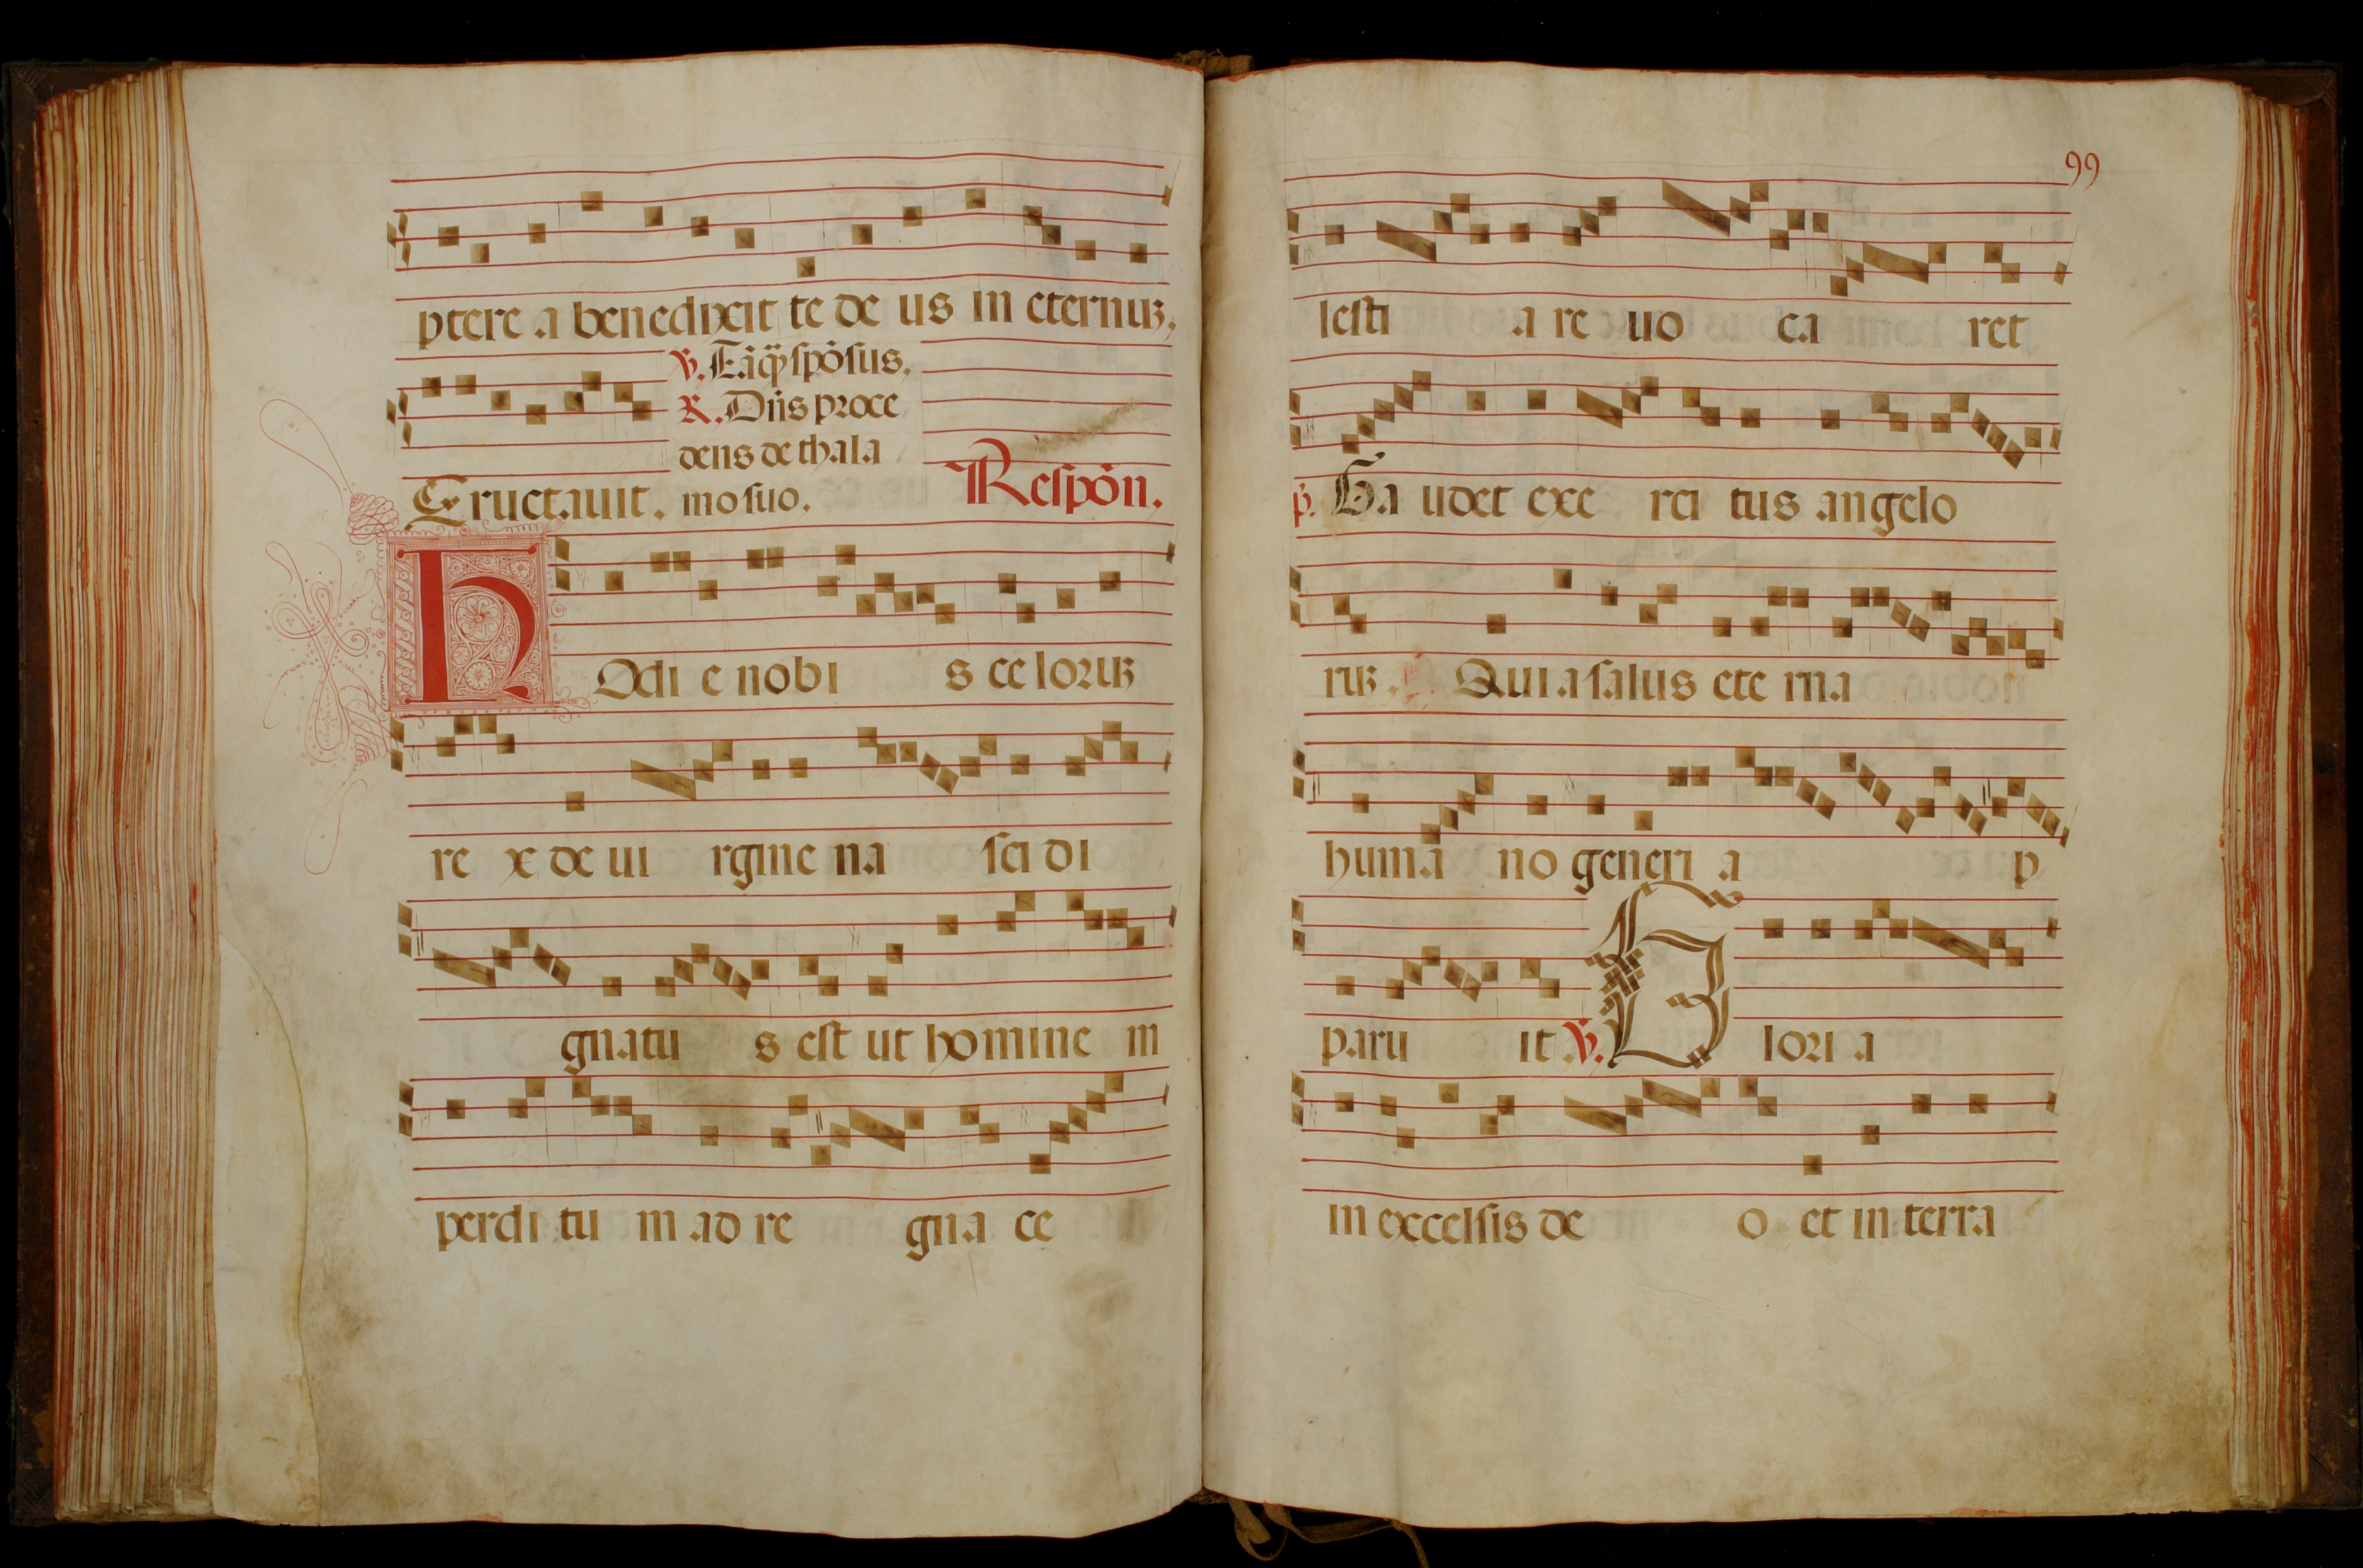 ptere a benedixit te de us in eternuꝫ,
℣. Tāqꝫ spōsus.
℟. Dn̄s proce
dens de thala
Eructauit. mo suo. Respōn.
H Odi e nobi s ce loruꝫ
re x de ui rgine na sci di
gnatu s est ut homine m
perdi tu m ad re gna ce
99
lesti a re uo ca ret
p̄. Ga udet exe rci tus angelo
ruꝫ. Quia salus ete rna
humā no generi a p
paru it ℣. G lori a
in excelsis de o et in terra